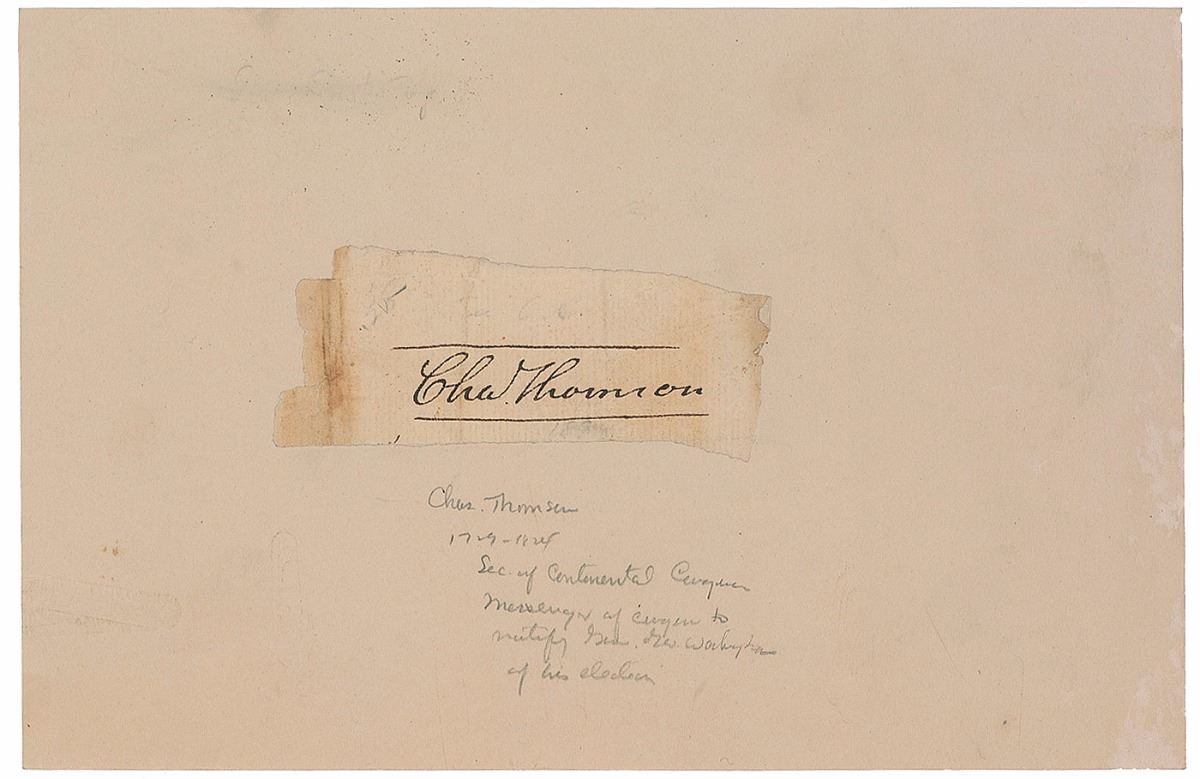 Chas. Thomson
Chas. Thomson
1729-1824
Sec. of Continental Congress
Messenger of congress to
notify Gen. Geo. Washington
of his election